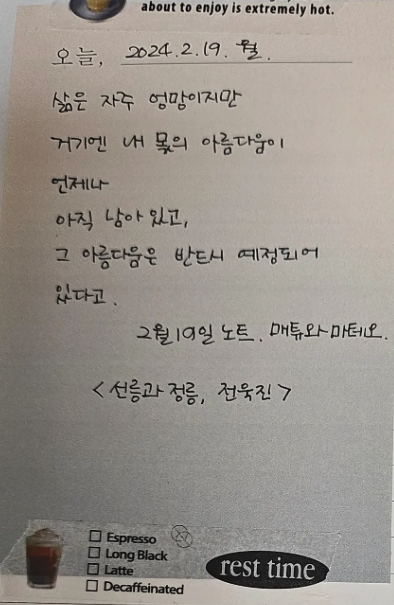 about to enjoy is extremely hot.
오늘, 2024.2.19. 월.
삶은 자주 엉망이지만
거기엔 내 몫의 아름다움이
언제나
아직 남아 있고,
그 아름다움은 반드시 예정되어
있다고.
2월 19일 노트. 매튜와 마테오.
<선릉과 정릉, 전욱진>
□ Espresso
□ Long Black
□ Latte
□ Decaffeinated
rest time